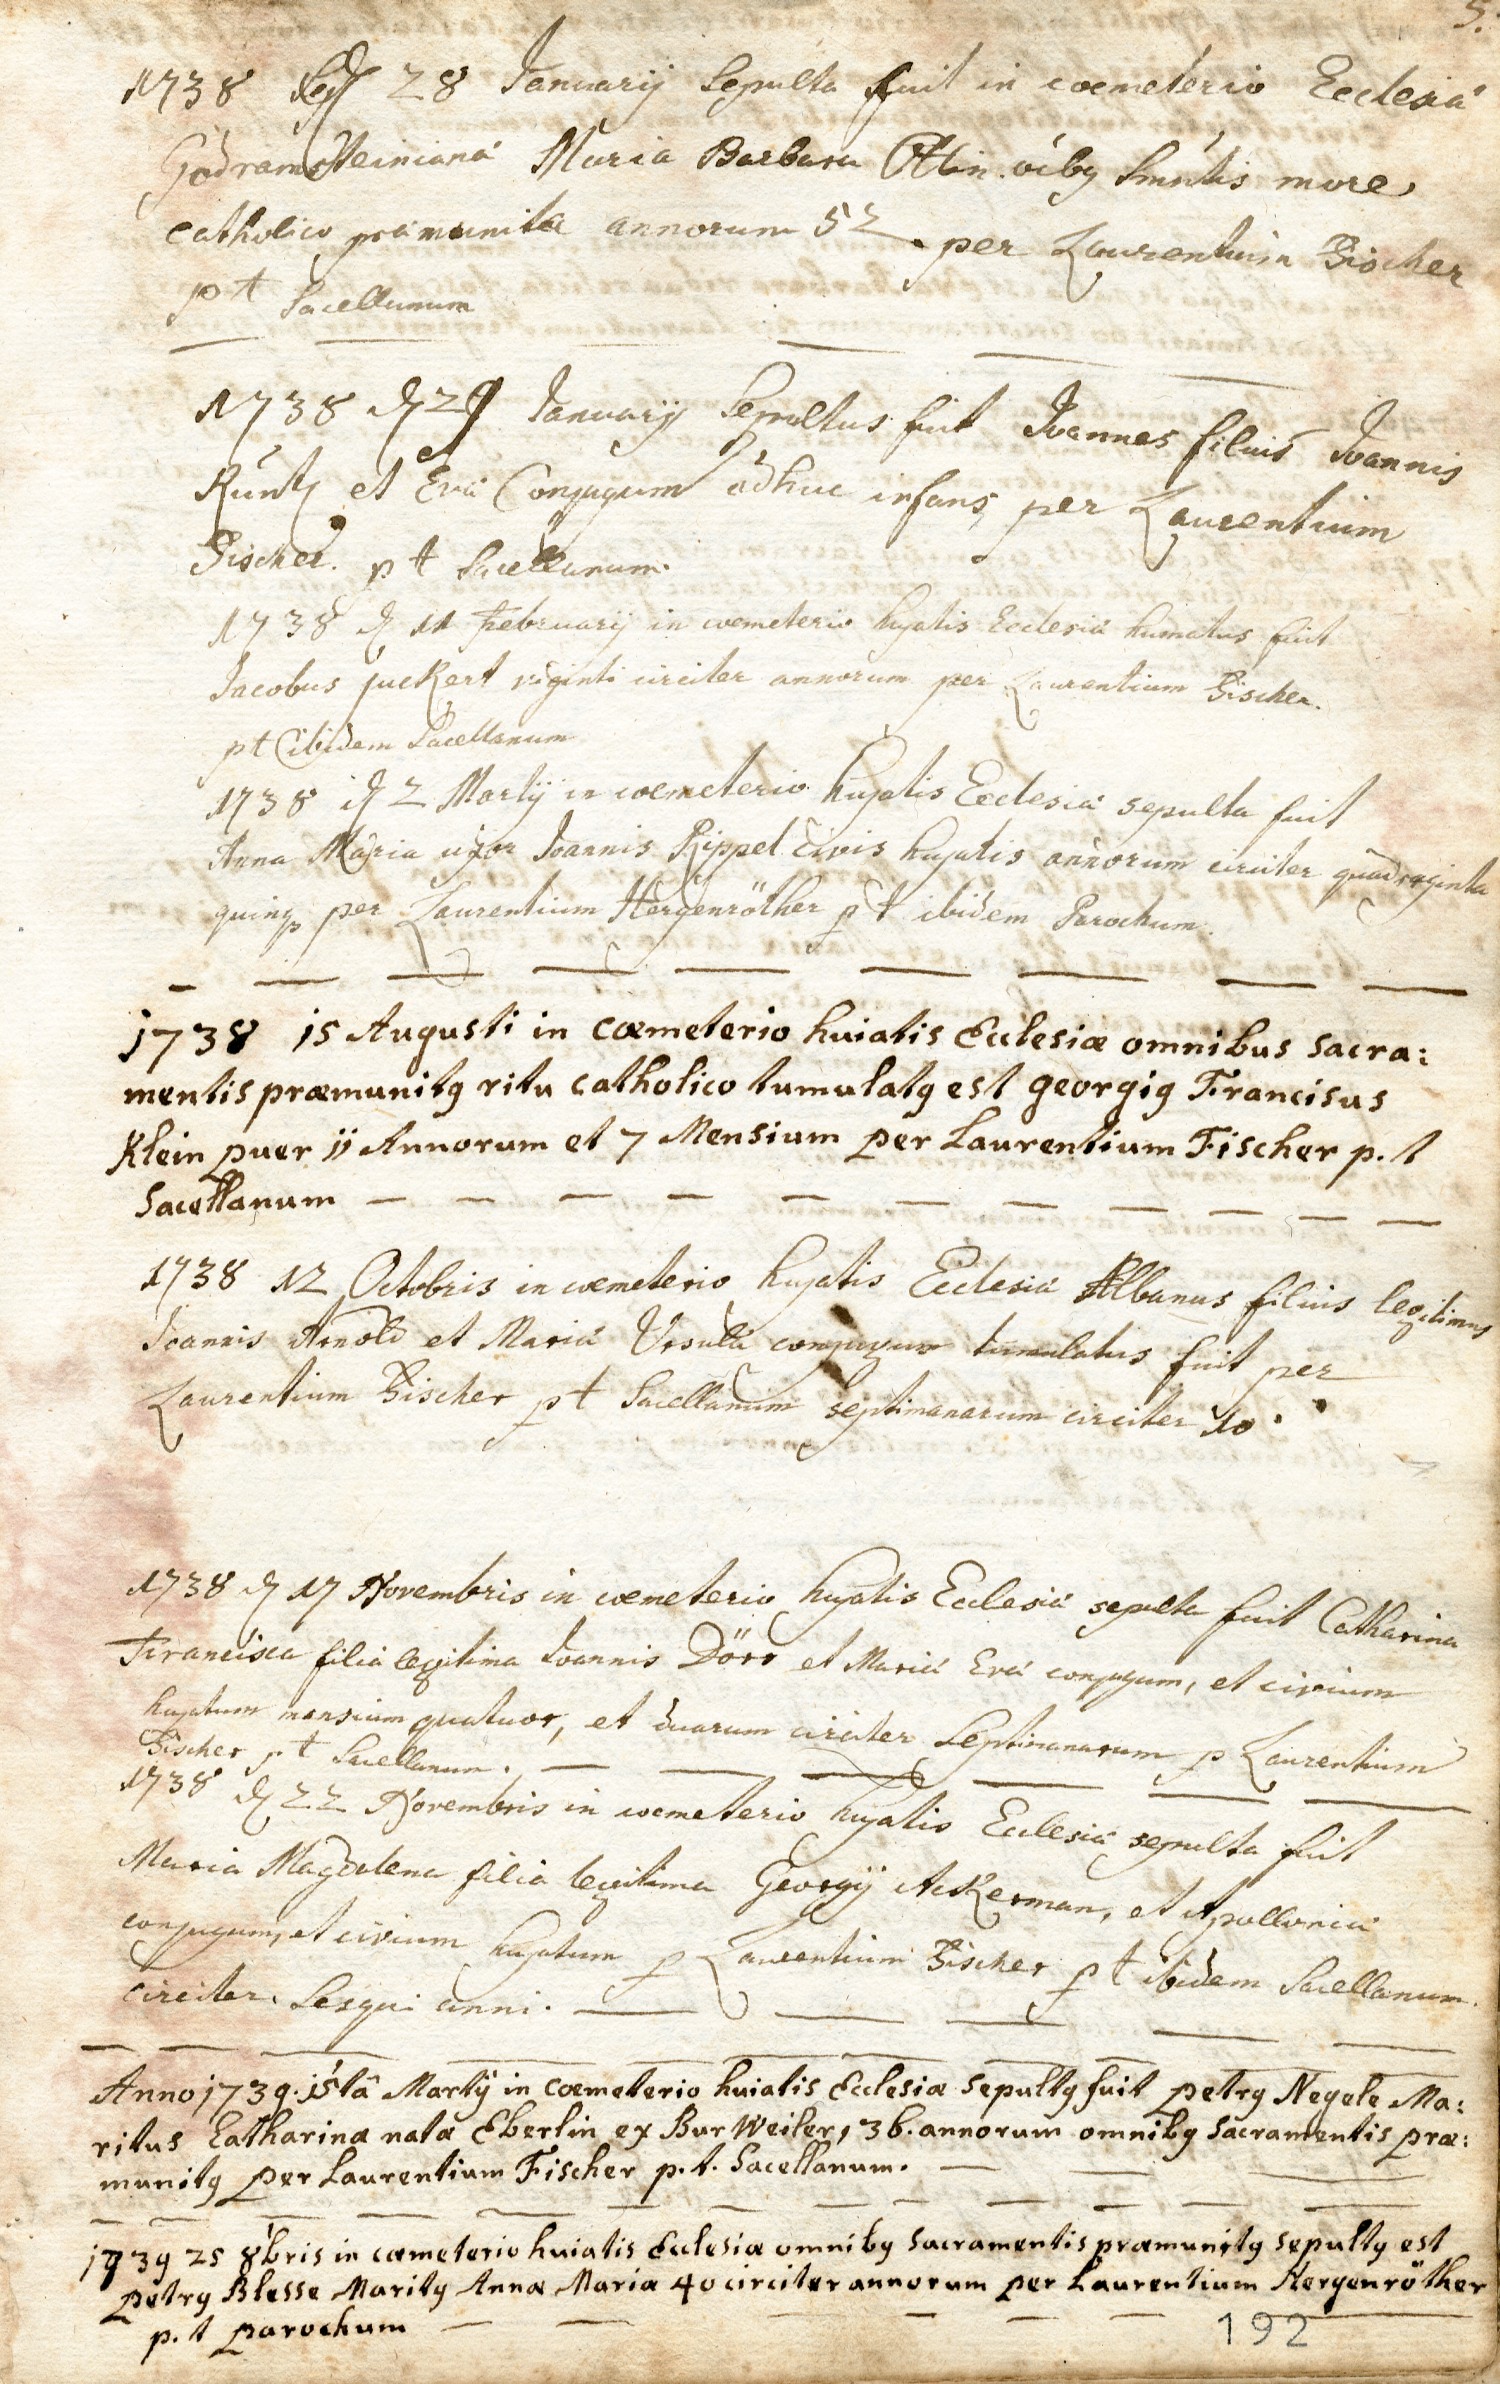 5.
1738 d 28 Januarij Sepulta fuit in coemeterio Ecclesiæ
Godramsteinianæ Maria Barbara Ottin oibq Smntis more
catholico præmunita annorum 52 per Laurentium Fischer
p t Sacellanum
1738 d 29 Januarij Sepultus fuit Joannes filius Joannis
Kuntz et Evæ Conjugum adhuc infans, per Laurentium
Fischer. p t Sacellanum.
1738 d 11 Februarij in coemeterio hujatis Ecclesiæ humatus fuit
Jacobus juckert viginti circiter annorum per Laurentium Fischer.
pt ibidem Sacellanum
1738 d 2 Martij in coemeterio hujatis Ecclesiæ sepulta fuit
Anna Maria uxor Joannis Rippel civis hujatis annorum circiter quadraginta
quinq per Laurentium Hergenröther p t ibidem Parochum.
1738 15 Augusti in Cœmeterio huiatis Ecclesiæ omnibus sacra:
mentis præmunitq ritu catholico tumulatq est georgiq Francisus
Klein puer 11 Annorum et 7 Mensium per Laurentium Fischer p. t
Sacellanum
1738 12 Octobris in coemeterio hujatis Ecclesiæ Albanus filius legitimus
Joannis Arnold et Mariæ Ursulæ conjugum tumulatus fuit per
Laurentium Fischer pt Sacellanum septimanarum circiter 10.
1738 d 17 Novembris in coemeterio hujatis Ecclesiæ sepulta fuit Catharina
Francisca filia legitima Joannis Dörr et Mariæ Evæ conjugum, et civium
hujatum mensium quatuor, et duarum circiter Septimanarum p Laurentium
Fischer pt Sacellanum.
1738 d 22 Novembris in coemeterio hujatis Ecclesiæ sepulta fuit
Maria Magdalena filia legitima Georgij Ackerman, et Apolloniæ
conjugum, et civium hujatum p Laurentium Fischer pt ibidem Sacellanum.
circiter Sesqui anni.
Anno 1739. 15tâ Martij in Cœmeterio huiatis Ecclesiæ sepultq fuit petrq Negele Ma:
ritus Catharinæ natæ Eberlin ex BurWeiler, 36. annorum omnibq Sacramentis præ:
munitq per Laurentium Fischer p. t. Sacellanum.
1739 25 8bris in cœmeterio huiatis Ecclesiæ omnibq sacramentis præmunitq sepultq est
petrq Blesse Maritq Annæ Mariæ 40 circiter annorum per Laurentium Hergenröther
p. t parochum
192